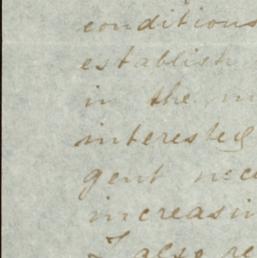 conditions
establish
in the m
interested
gent nece
increasin
I also re